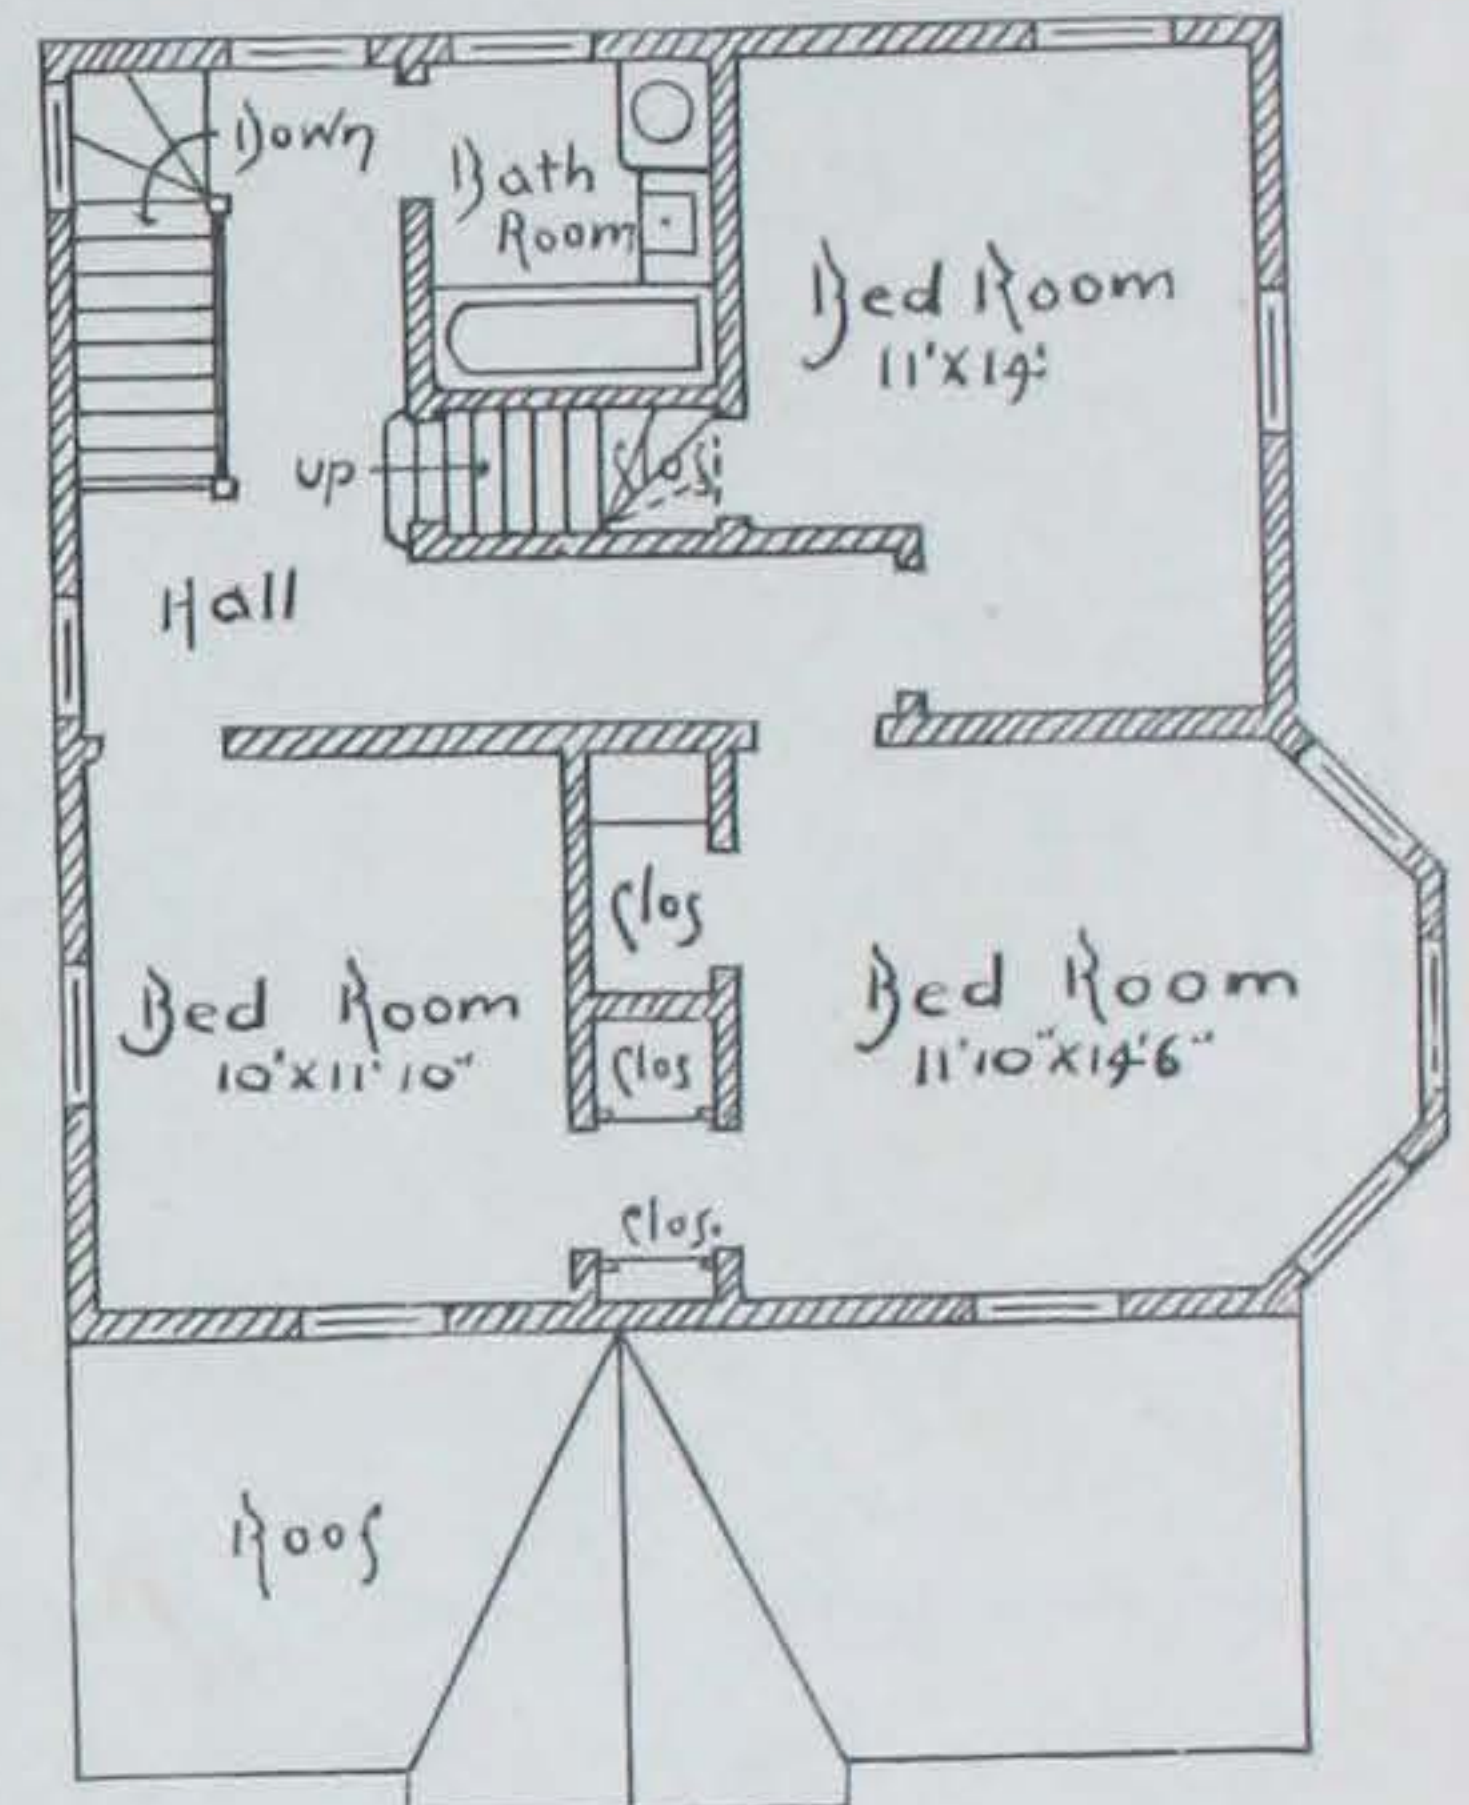 Down
Bath
Room
Bed Room
11'X14'
up
Clos.
Hall
Clos
Bed Room
10'X11'10"
Bed Room
11'10"X14'6"
Clos
Clos.
Roof